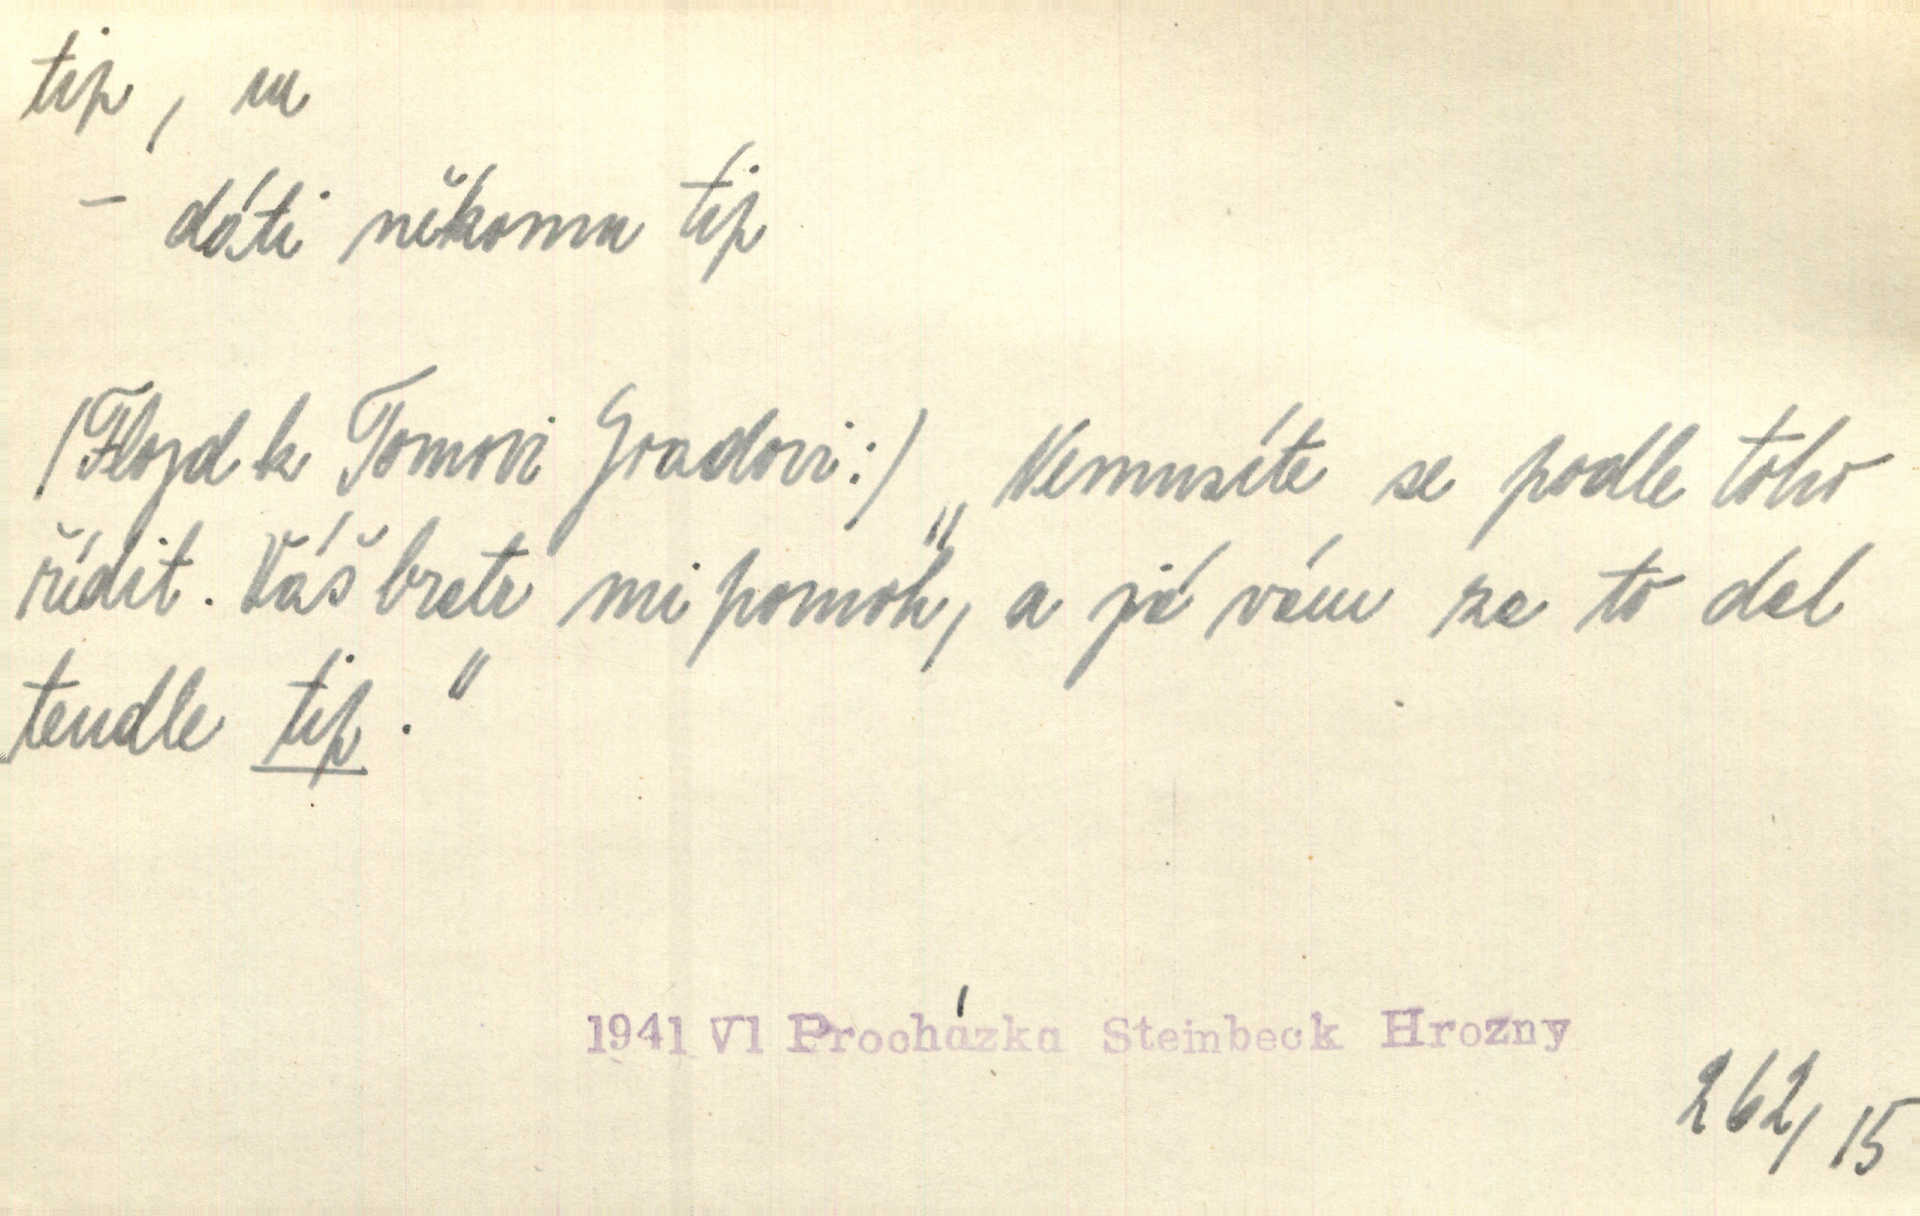 tip, u
- dáti někomu tip
(Flojd k Tomovi Joadovi:) „Nemusíte se podle toho
řídit. Váš brate mi pomoh, a já vám za to dal
tendle tip."
1941 VI Procházka Steinbeck Hrozny
262/15